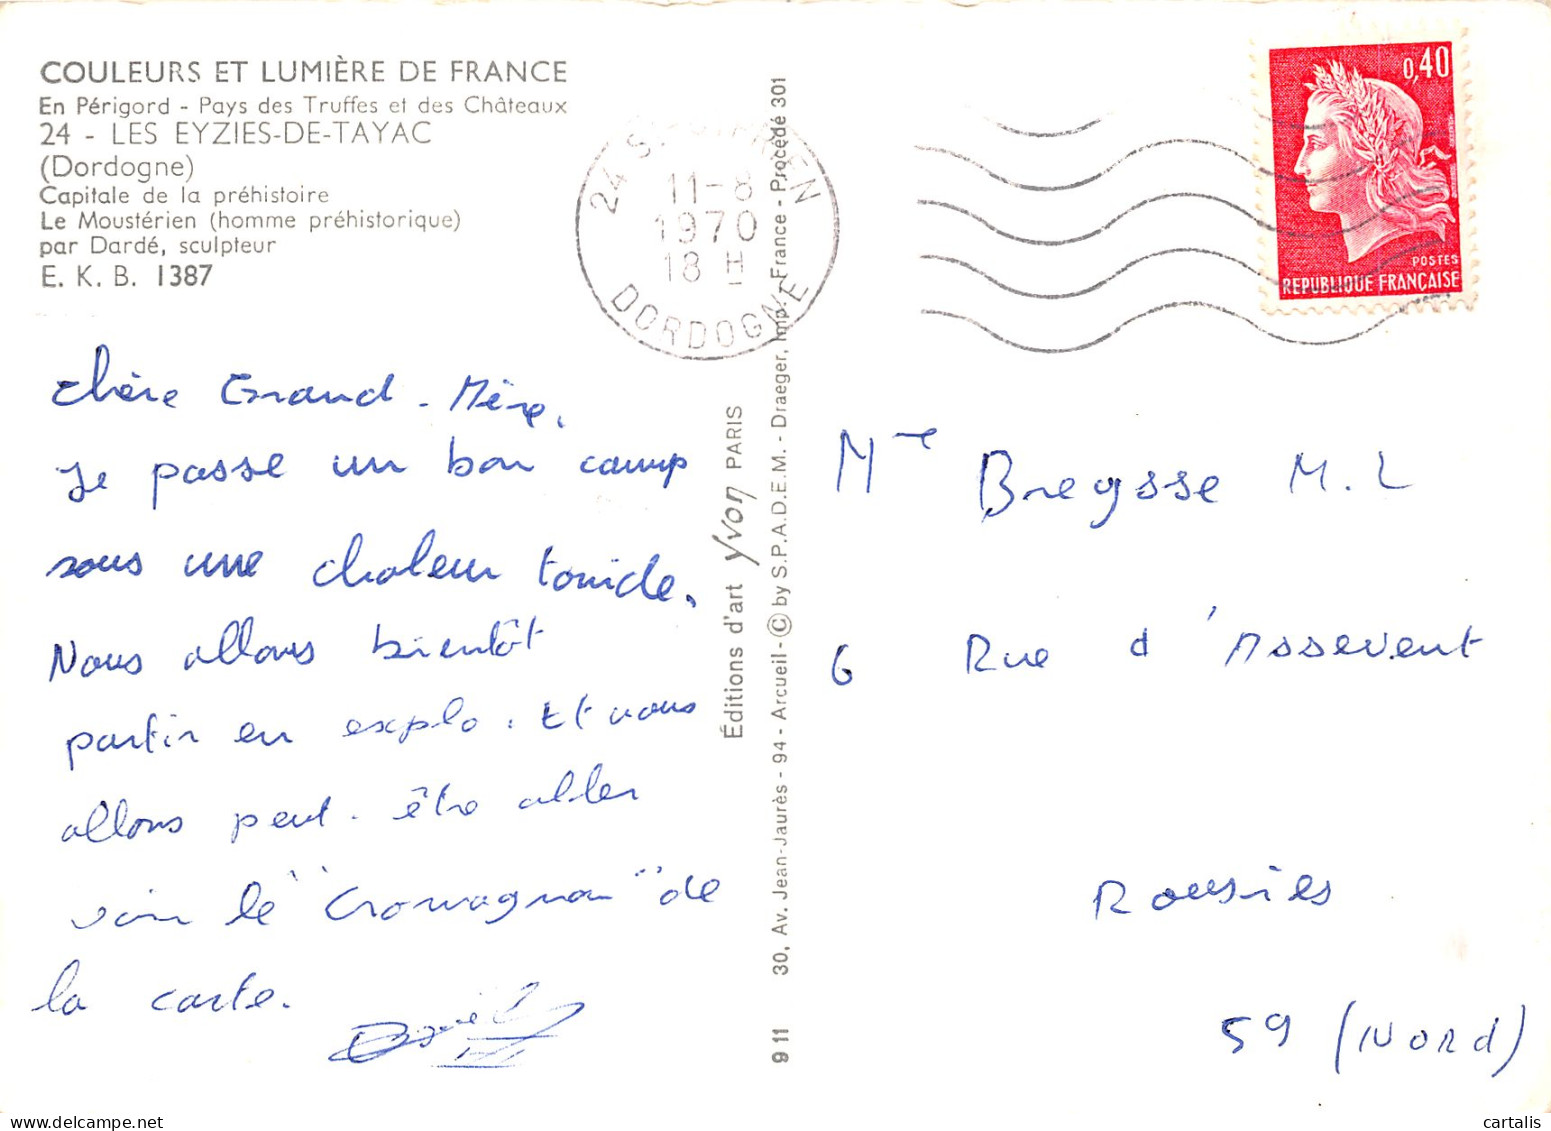 COULEURS ET LUMIÈRE DE FRANCE
En Périgord - Pays des Truffes et des Châteaux
24 - LES EYZIES-DE-TAYAC
(Dordogne)
Capitale de la préhistoire
Le Moustérien (homme préhistorique)
par Dardé, sculpteur
E. K. B. 1387
Chère Grand-Mère.
Je passe un bon camp
sous une chaleur torride.
Nous allons bientôt
partir en explo. Et nous
allons peut-être aller
voir le "Cromagnon" de
la carte.
Daniel
Éditions d'art yvon PARIS
30, Av. Jean-Jaurès - 94 - Arcueil - © by S.P.A.D.E.M. - Draeger, Imp. - France - Procédé 301
9 11
24
11-8
1970
18 H
DORDOGNE
0,40
POSTES
REPUBLIQUE FRANÇAISE
Mme Breysse M. L
6 Rue d'Assevent
Rousies
59 (Nord)
cartalis